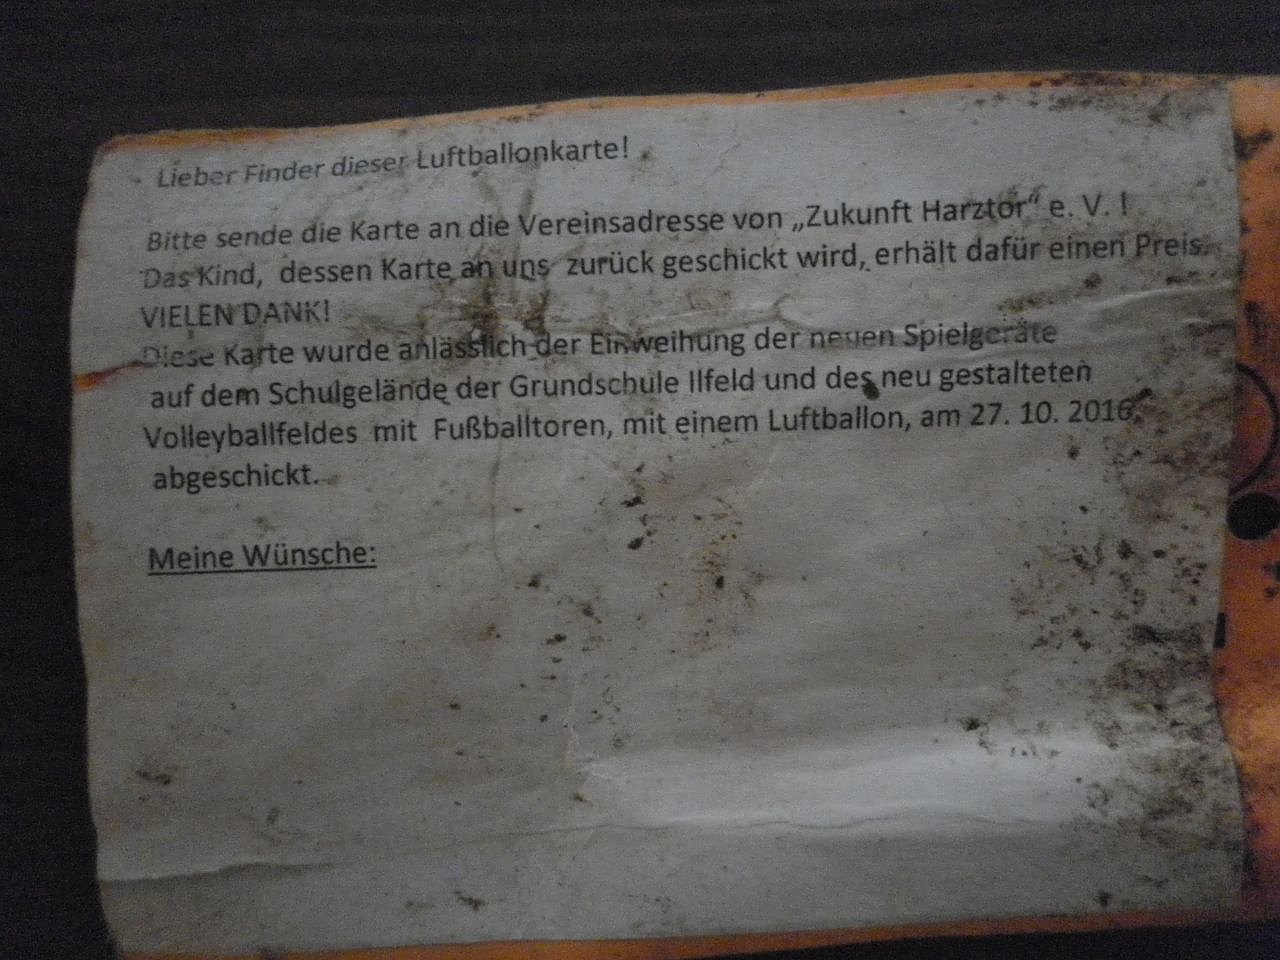 Lieber Finder dieser Luftballonkarte!
Bitte sende die Karte an die Vereinsadresse von „Zukunft Harztor“ e. V. !
Das Kind, dessen Karte an uns zurück geschickt wird, erhält dafür einen Preis.
VIELEN DANK!
Diese Karte wurde anlässlich der Einweihung der neuen Spielgeräte
auf dem Schulgelände der Grundschule Ilfeld und des neu gestalteten
Volleyballfeldes mit Fußballtoren, mit einem Luftballon, am 27. 10. 2016,
abgeschickt.
Meine Wünsche: